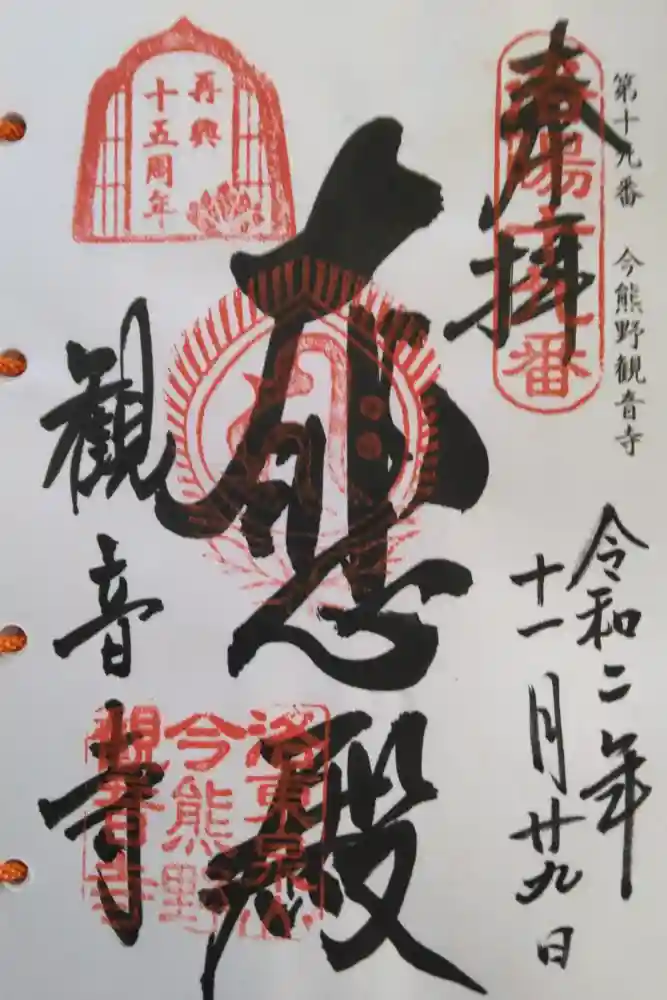 第十九番 今熊野観音寺
奉拝
洛陽十九番
令和二年
十一月廿九日
再興
十五周年
大悲殿
観音寺
洛東泉山
今熊野
観音寺